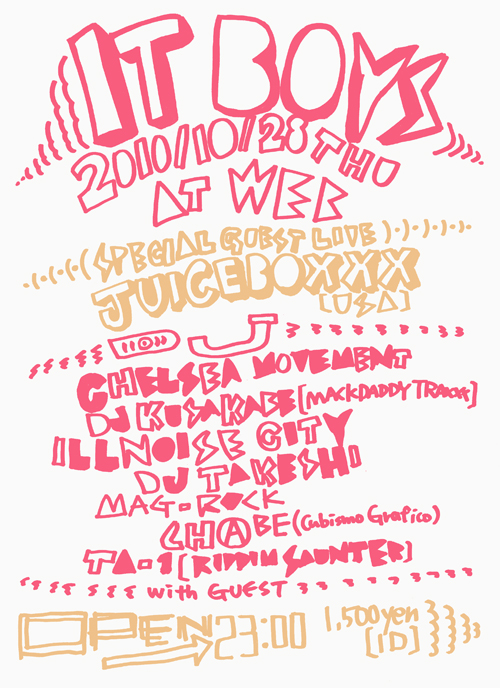 IT BOYS
2010/10/28 THU
AT WEB
(SPECIAL GUEST LIVE)
JUICEBOXXX
[USA]
DJ
CHELSEA MOVEMENT
DJ KUSAKABE [MACKDADDY TRAXXX]
ILLNOISE CITY
DJ TAKESHI
MAG-ROCK
CHABE (Cubismo Grafico)
TA-1 [RIDDIM SAUNTER]
with GUEST
OPEN 23:00 1,500yen
[1D]